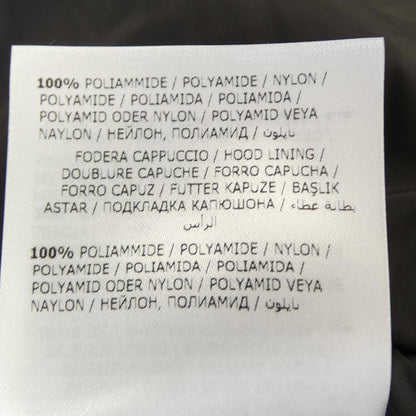 100% POLIAMMIDE / POLYAMIDE / NYLON /
POLYAMIDE / POLIAMIDA / POLIAMIDA /
POLYAMID ODER NYLON / POLYAMID VEYA
NAYLON / НЕЙЛОН, ПОЛИАМИД / نايلون
FODERA CAPPUCCIO / HOOD LINING /
DOUBLURE CAPUCHE / FORRO CAPUCHA /
FORRO CAPUZ / FUTTER KAPUZE / BAŞLIK
ASTAR / ПОДКЛАДКА КАПЮШОНА / بطانة غطاء
الرأس
100% POLIAMMIDE / POLYAMIDE / NYLON /
POLYAMIDE / POLIAMIDA / POLIAMIDA /
POLYAMID ODER NYLON / POLYAMID VEYA
NAYLON / НЕЙЛОН, ПОЛИАМИД / نايلون